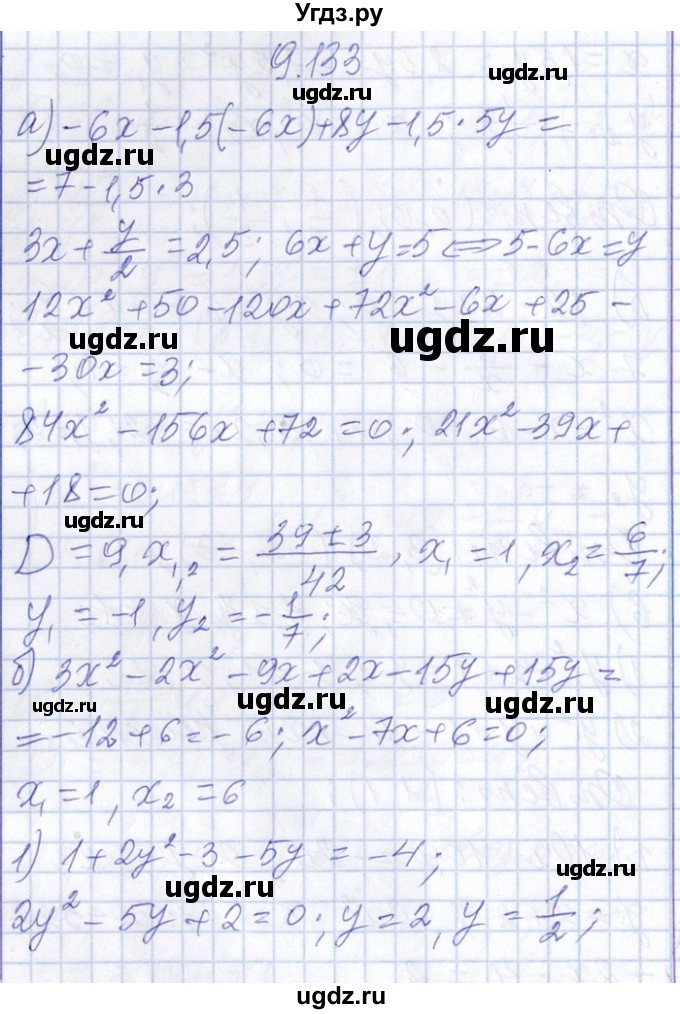 Угдз.ру
9.133
ugdz.ru
ugdz.ru
а) -6x - 1,5(-6x) + 8y - 1,5 · 5y =
ugdz.ru
= 7 - 1,5 · 3
3x + y/2 = 2,5; 6x + y = 5 ⟺ 5 - 6x = y
12x² + 50 - 120x + 72x² - 6x + 25 -
ugdz.ru
ugdz.ru
- 30x = 3;
84x² - 156x + 72 = 0; 21x² - 39x +
+ 18 = 0;
ugdz.ru
D = 9, x₁,₂ = (39 ± 3)/42, x₁ = 1, x₂ = 6/7;
y₁ = -1, y₂ = -1/7;
б) 3x² - 2x² - 9x + 2x - 15y + 15y =
ugdz.ru
ugdz.ru
ugdz.ru
= -12 + 6 = -6; x² - 7x + 6 = 0;
x₁ = 1, x₂ = 6
1) 1 + 2y² - 3 - 5y = -4;
ugdz.ru
ugdz.ru
2y² - 5y + 2 = 0; y = 2, y = 1/2;
ugdz.ru
ugdz.ru